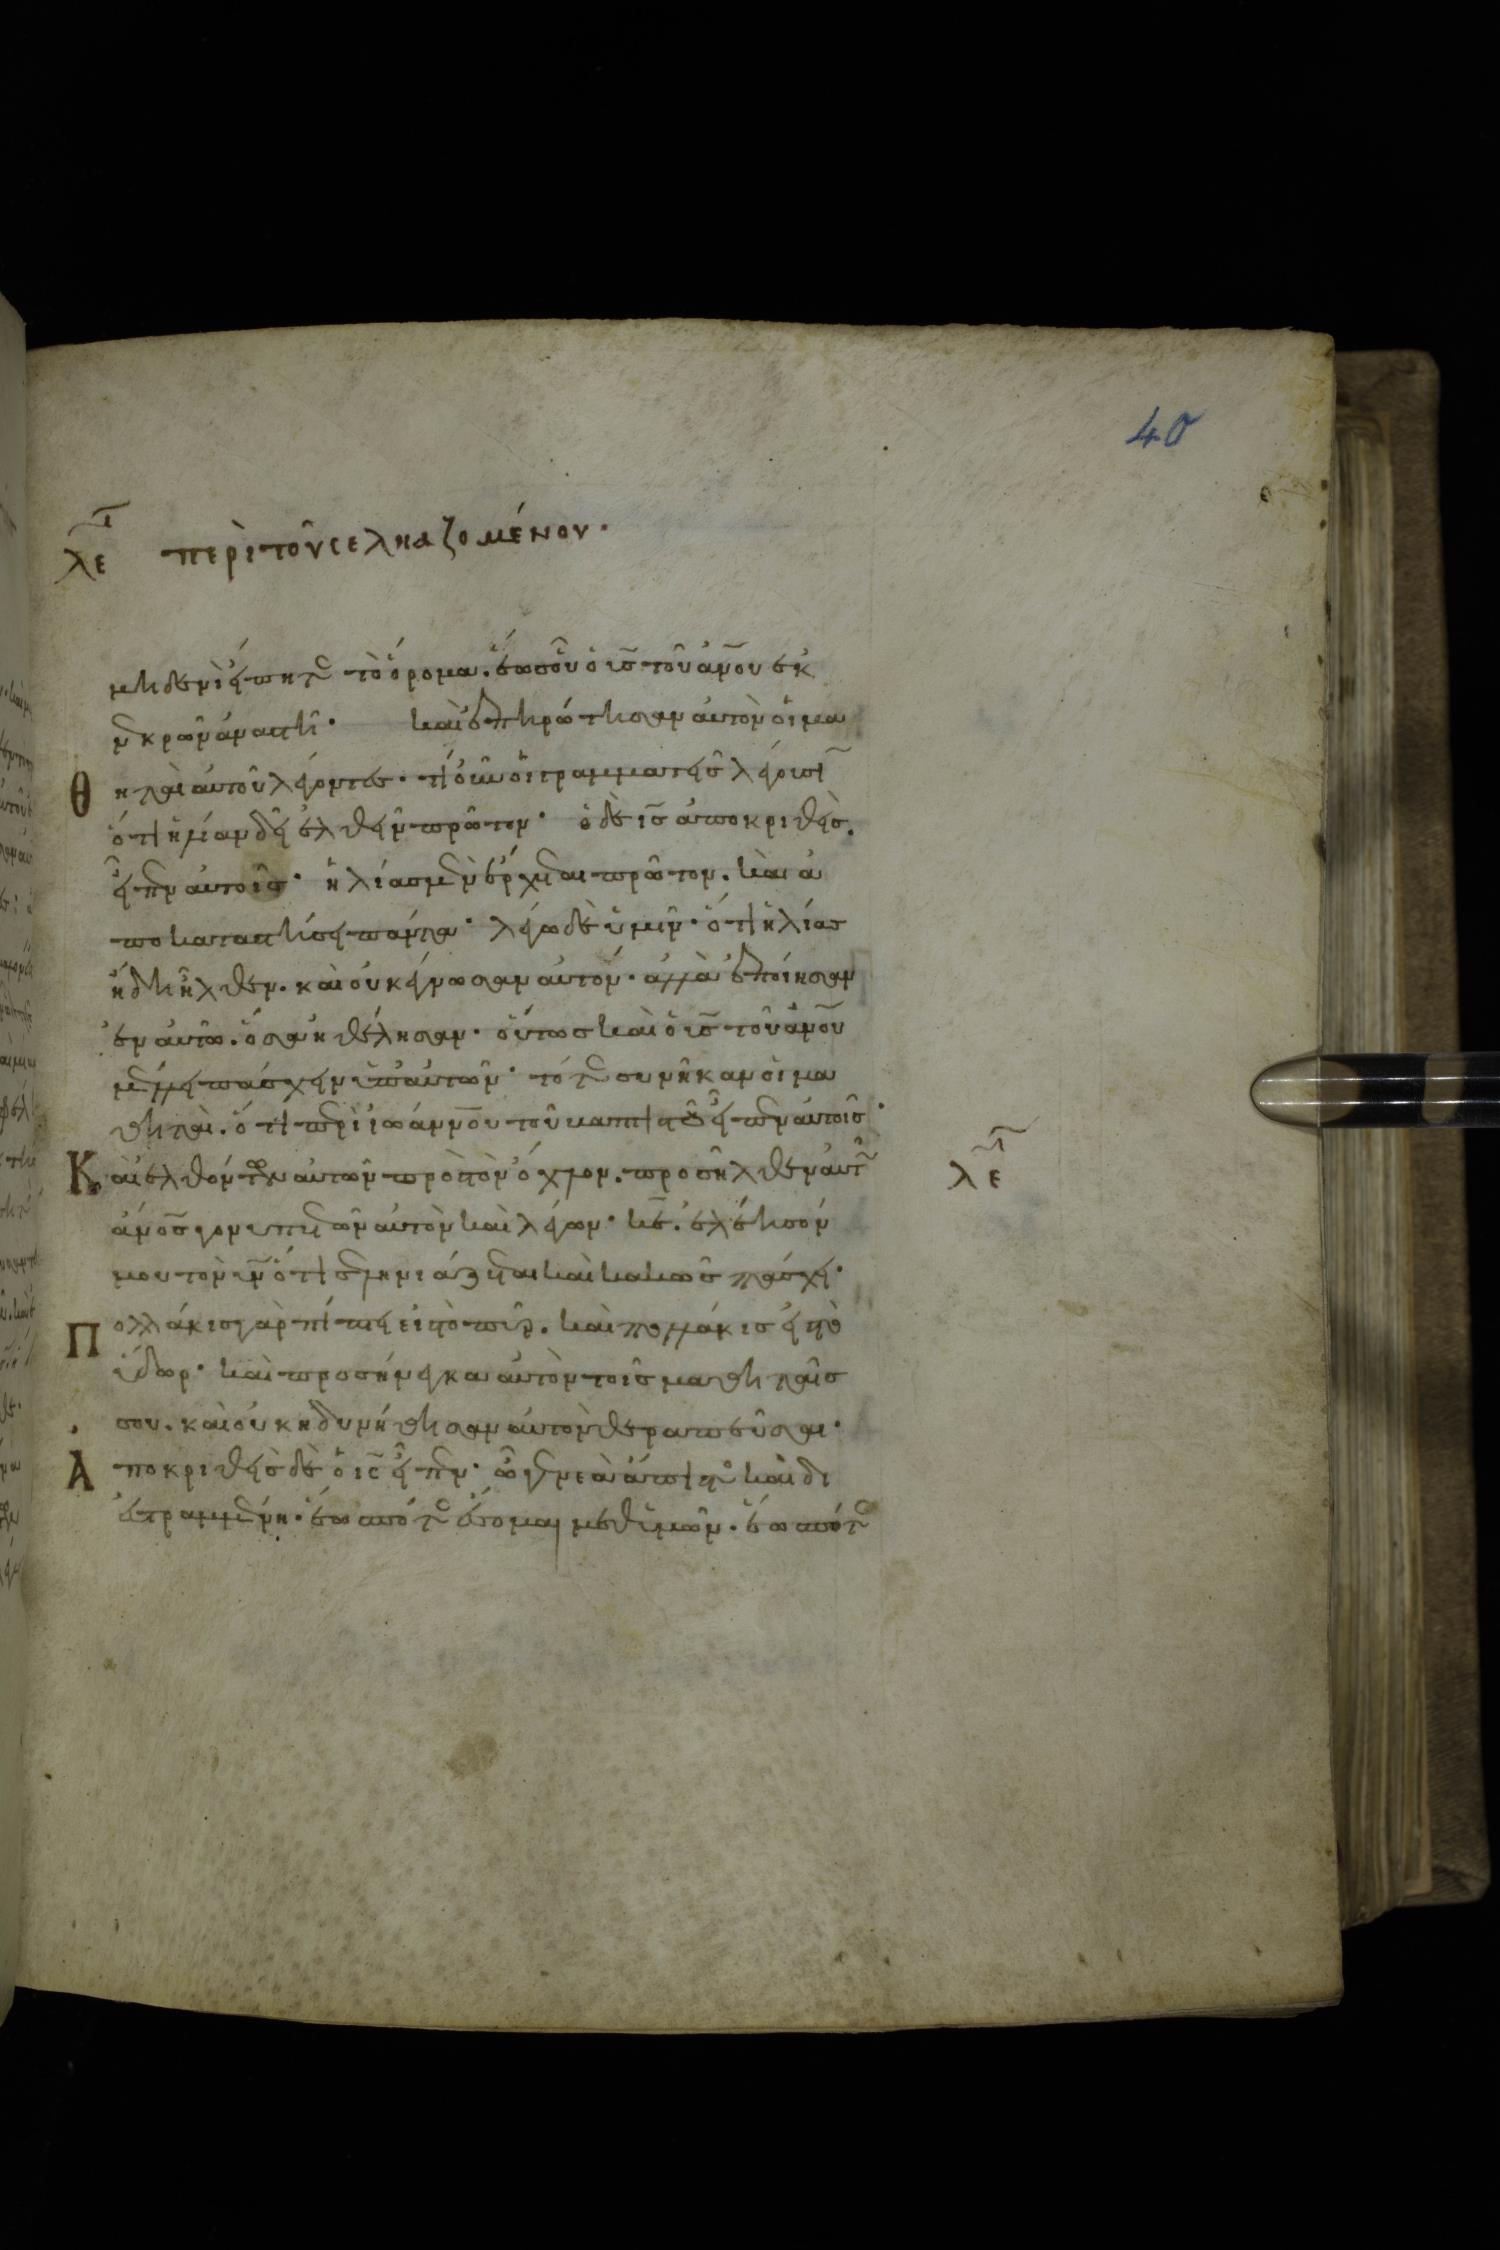 40
λε περὶ τοῦ σεληαζομένου·
μηδενὶ εἴπητε τὸ ὅρομα. ἕως οὗ ὁ υἱς τοῦ ἀνου ἐκ
νεκρῶν ἀναστῆ· καὶ ἐπηρώτησαν αὐτὸν οἱ μα
Θ ηταὶ αὐτοῦ λέγοντες· τί οὖν οἱ γραμματεῖς λέγουσι
ὅτι ἠλίαν δεῖ ἐλθεῖν πρῶτον· ὁ δὲ ις ἀποκριθεὶς.
εἶπεν αὐτοῖς· ἠλίας μὲν ἔρχεται πρῶτον. καὶ ἀ
ποκαταστήσει πάντα· λέγω δὲ ὑμῖν· ὅτι ἠλίας
ἤδη ἦλθεν. καὶ οὐκ ἔγνωσαν αὐτόν· ἀλλὰ ἐποίησαν
ἐν αὐτῶ. ὅσα ἠθέλησαν· οὕτως καὶ ὁ υἱς τοῦ ἀνου
μέλλει πάσχειν ὑπ' αὐτῶν· τότε συνῆκαν οἱ μα
θηταὶ. ὅτι περὶ ἰωάννου τοῦ βαπτιστοῦ εἶπεν αὐτοῖς·
Κ αὶ ἐλθόντων αὐτῶν πρὸς τὸν ὄχλον. προσῆλθεν αὐτῶ λε
ἄνος γονυπετῶν αὐτὸν καὶ λέγων· κε. ἐλέησόν
μου τὸν υν ὅτι σεληνιάζεται καὶ κακῶς πάσχει·
Π ολλάκις γὰρ πίπτει εἰς τὸ πῦρ. καὶ πολλάκις εἰς τὸ
ὕδωρ· καὶ προσήνεγκα αὐτὸν τοῖς μαθηταῖς
σου. καὶ οὐκ ἠδυνήθησαν αὐτὸν θεραπεῦσαι·
Ἀ ποκριθεὶς δὲ ὁ ις εἶπεν· ὦ γενεὰ ἄπιστος καὶ δι
εστραμμένη· ἕως πότε ἔσομαι μεθ' ὑμῶν· ἕως πότε